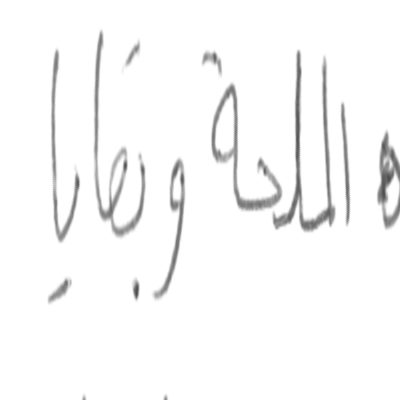 ه الملحة وبقايا